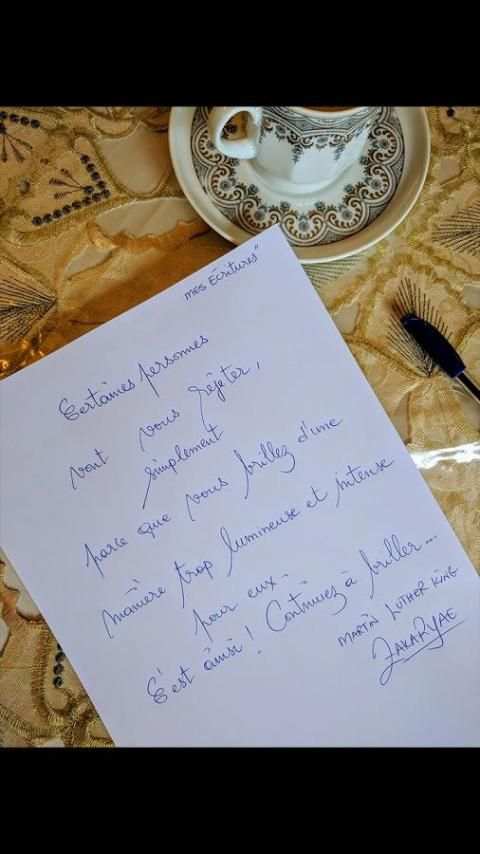 mes écritures"
Certaines personnes
vont vous rejeter,
simplement
parce que vous brillez d'une
manière trop lumineuse et intense
pour eux.
C'est ainsi! Continuez à briller...
MARTIN LUTHER KING
ZAKARYAE